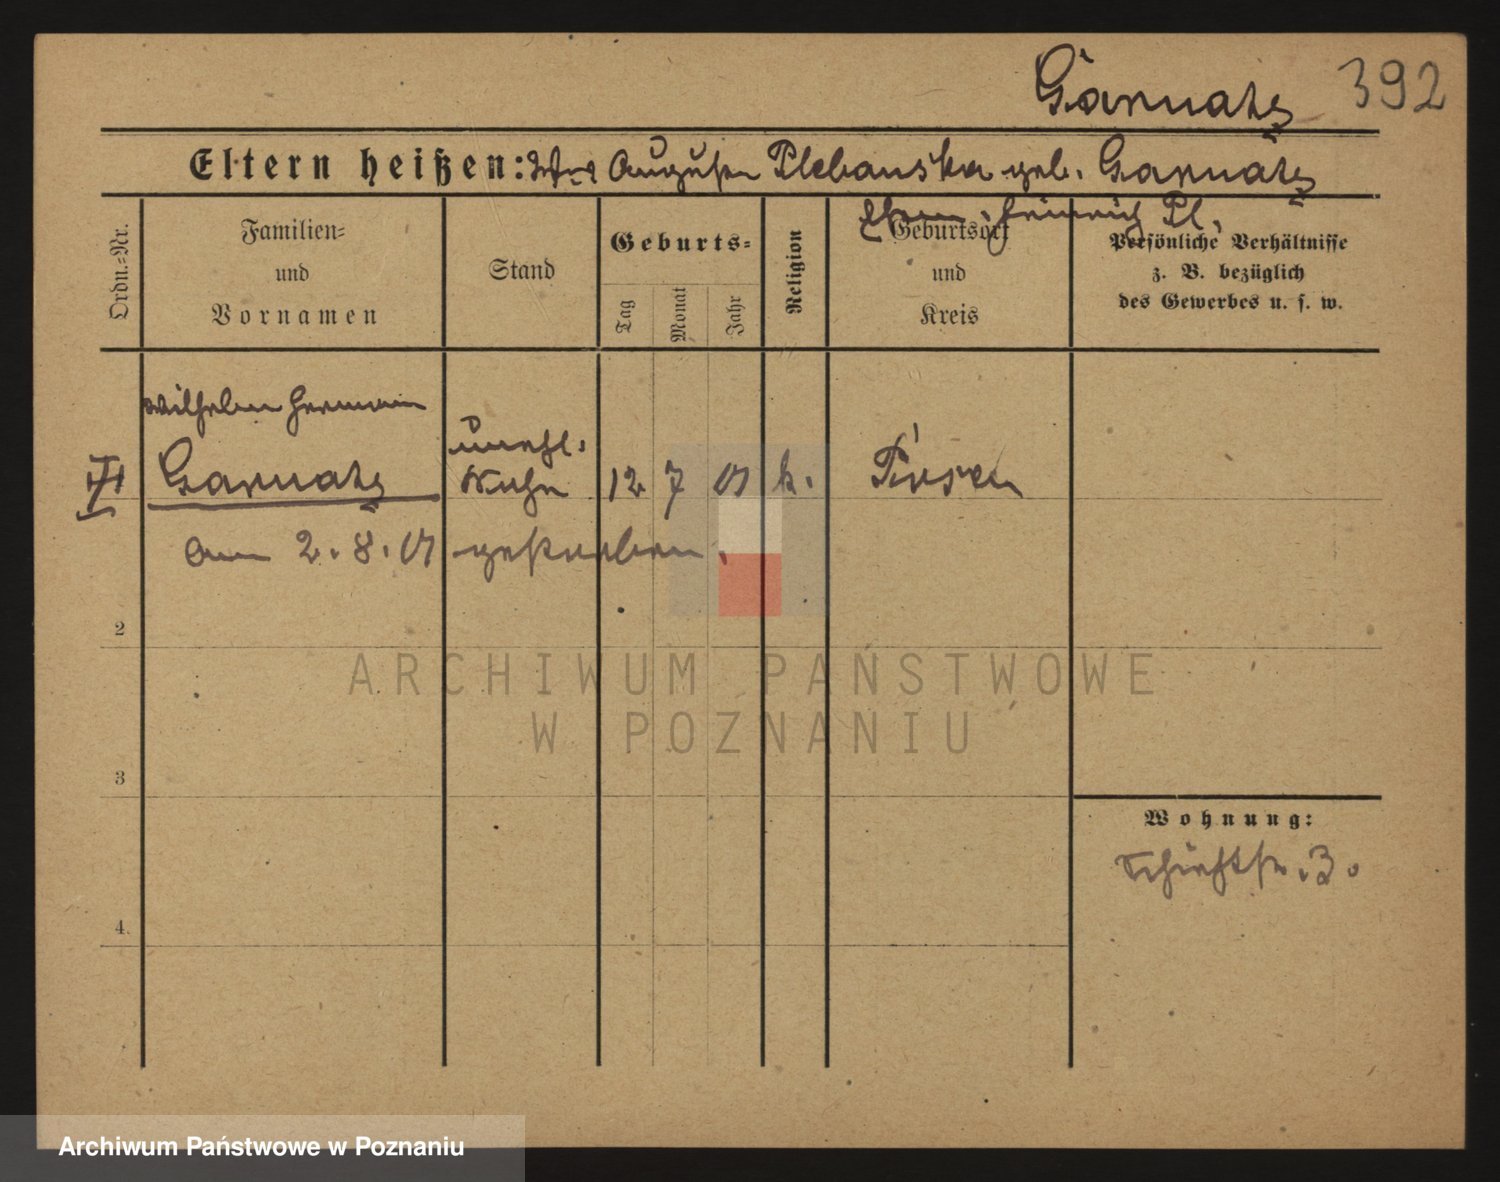 Garnatz 392
Eltern heißen: Auguste Plebanska geb. Garnatz
Ehem. Heinrich Pl.
Ordn.-Nr.
Familien-
und
Vornamen
Stand
Geburts-
Tag
Monat
Jahr
Religion
Geburtsort
und
Kreis
Persönliche Verhältnisse
z. B. bezüglich
des Gewerbes u. s. w.
Wilhelm Hermann
Garnatz
unehl.
12 7 01 k. Posen
am 2.8.01 gestorben.
2
3
4.
Wohnung:
3.
ARCHIWUM PAŃSTWOWE
W POZNANIU
Archiwum Państwowe w Poznaniu